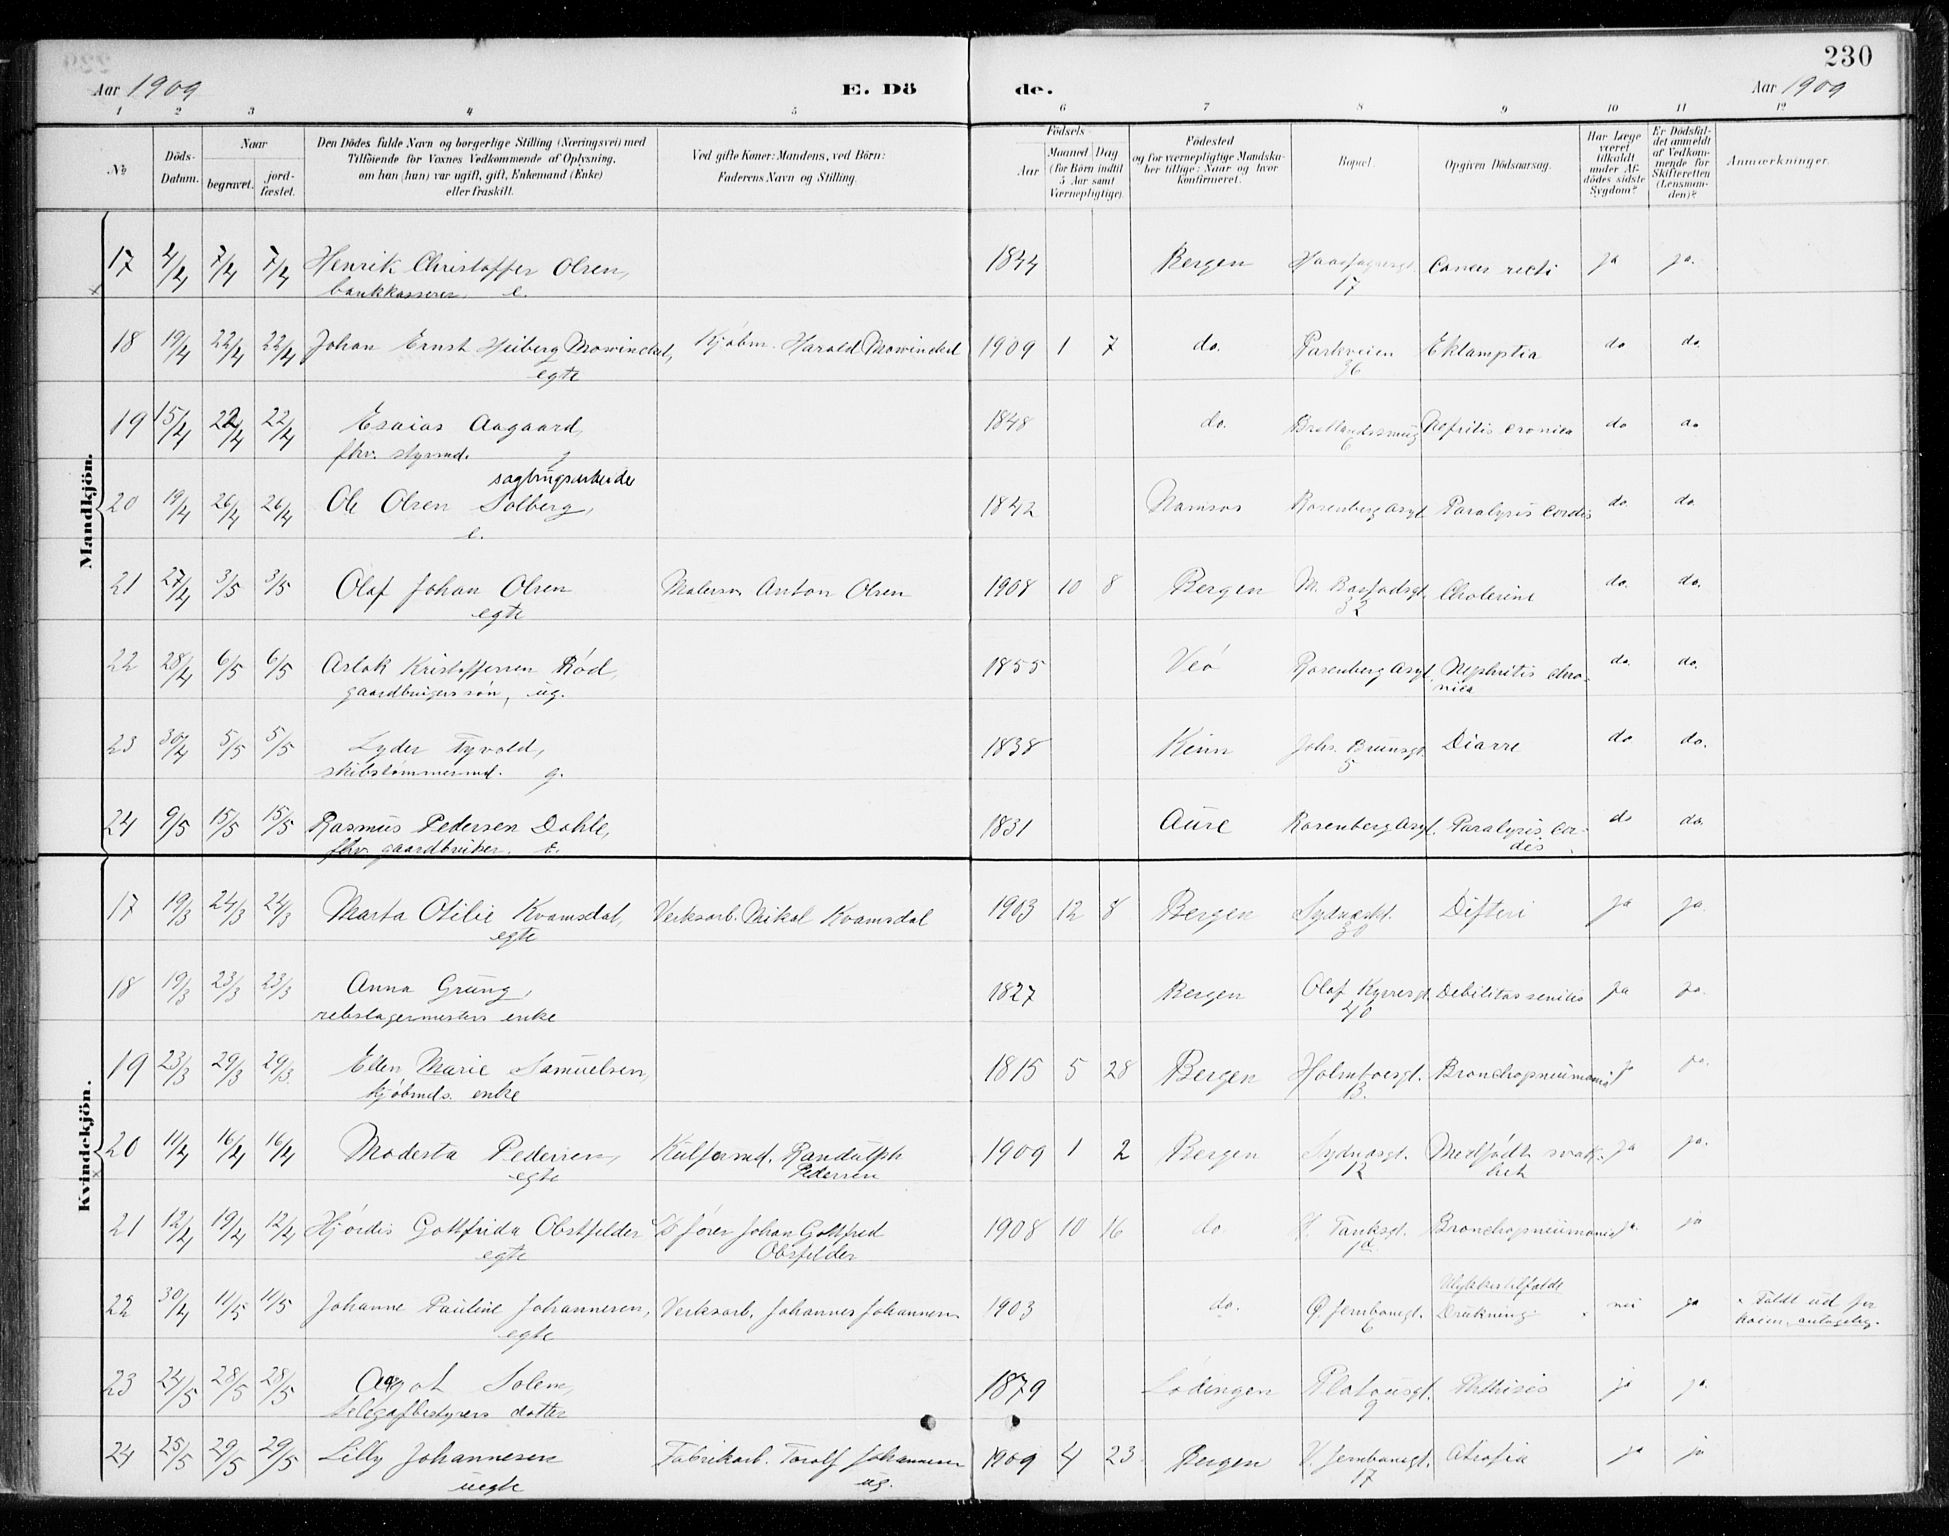 230
Aar 1909 E. Dö de. Aar 1909
1 2 3 4 5 6 7 8 9 10 11 12
No
Döds-Datum.
Naar
begravet.
jord-fæstet.
Den Dödes fulde Navn og borgerlige Stilling (Næringsvei) med
Tilföiende for Voxnes Vedkommende af Oplysning,
om han (hun) var ugift, gift, Enkemand (Enke)
eller fraskilt.
Ved gifte Koner: Mandens, ved Börn:
Faderens Navn og Stilling.
Födsels-
Aar
Maaned Dag
(for Börn indtil
5 Aar samt
Værnepligtige).
Födested
og for værnepligtige Mandska-
ber tillige: Naar og hvor
konfirmeret.
Bopæl.
Opgiven Dödsaarsag.
Har Læge
været
tilkaldt
under Af-
dödes sidste
Sygdom?
Er Dödsfal-
det anmeldt
af Vedkom-
mende for
Skifteretten
(Lensman-
den)?
Anmærkninger.
Mandkjön.
17 4/4 7/4 7/4 Henrik Christoffer Olsen, 1844 Bergen Cancer recti ja ja.
bankkasserer, e. 17
18 19/4 22/4 22/4 Johan Ernst Heiberg Mowinckel, Kjøbm. Harald Mowinckel 1909 1 7 do. Parkveien Eklamptia do do.
egte 36
19 15/4 22/4 22/4 Esaias Aagaard, 1848 do. Nefritis cronica do do
fhv. styrmd. g 6
sagbrugsarbeider
20 19/4 26/4 26/4 Ole Olsen Solberg, 1842 Namsos Rosenberg Asyl Paralysis cordis do. do.
e.
21 27/4 3/5 3/5 Olaf Johan Olsen Malersv. Anton Olsen 1908 10 8 Bergen Cholerine do. do.
egte 32
22 28/4 6/5 6/5 Aslak Kristoffersen Rød, 1855 Veø Rosenberg Asyl. Nephritis chro-
gaardbrugers søn, ug. nica do. do.
23 30/4 5/5 5/5 Lyder Tyvold, 1838 Kinn Johs. Brunsgt. Diarre do do.
skibstømmermd. g. 5
24 9/5 15/5 15/5 Rasmus Pedersen Dahle, 1831 Aure Rosenberg Asyl. Paralysis cor- do do.
fhv. gaardbruker. e. dis
Kvindekjön.
17 19/3 24/3 24/3 Marta Otilie Kvamsdal, Verksarb. Mikal Kvamsdal 1903 12 8 Bergen Difteri ja ja.
egte 30
18 19/3 23/3 23/3 Anna Grung, 1827 Bergen Olaf Kyrresgt. Debilitas senilis ja ja.
rebslagermesters enke 40
19 23/3 29/3 29/3. Ellen Marie Samuelsen, 1815 5 28 Bergen Holmboesgt. Bronchopneumonia ja ja.
kjøbmds. enke 13.
20 11/4 16/4 16/4 Modesta Pedersen, Kulformd. Randulph 1909 1 2 Bergen Sydnesgt. Medfødt svak- ja ja.
egte Pedersen 12 het
21 12/4 19/4 12/4 Hjørdis Gottfrida Obstfelder Johan Gottfred 1908 10 16 do Tanksgt. Bronchopneumonia ja. ja
egte Obsfelder
Ulykkestilfælde
22 30/4 11/5 11/5 Johanne Pauline Johannesen, Verksarb. Johannes Johannesen 1903 do. Ø. Jernbanegt. Drukning nei ja Faldt ud fra
egte 6 kaien, antagelig.
23 24/5 28/5 28/5 Aagot Solem, 1879 Lødingen Platousgt. Phthisis ja ja.
telegrafbestyrers datter 9
24 25/5 29/5 29/5 Lilly Johannesen Fabrikarb. Torolf Johannesen 1909 4 23 Bergen V. Jernbanegt. Atrofia ja ja
uegte ug. 17